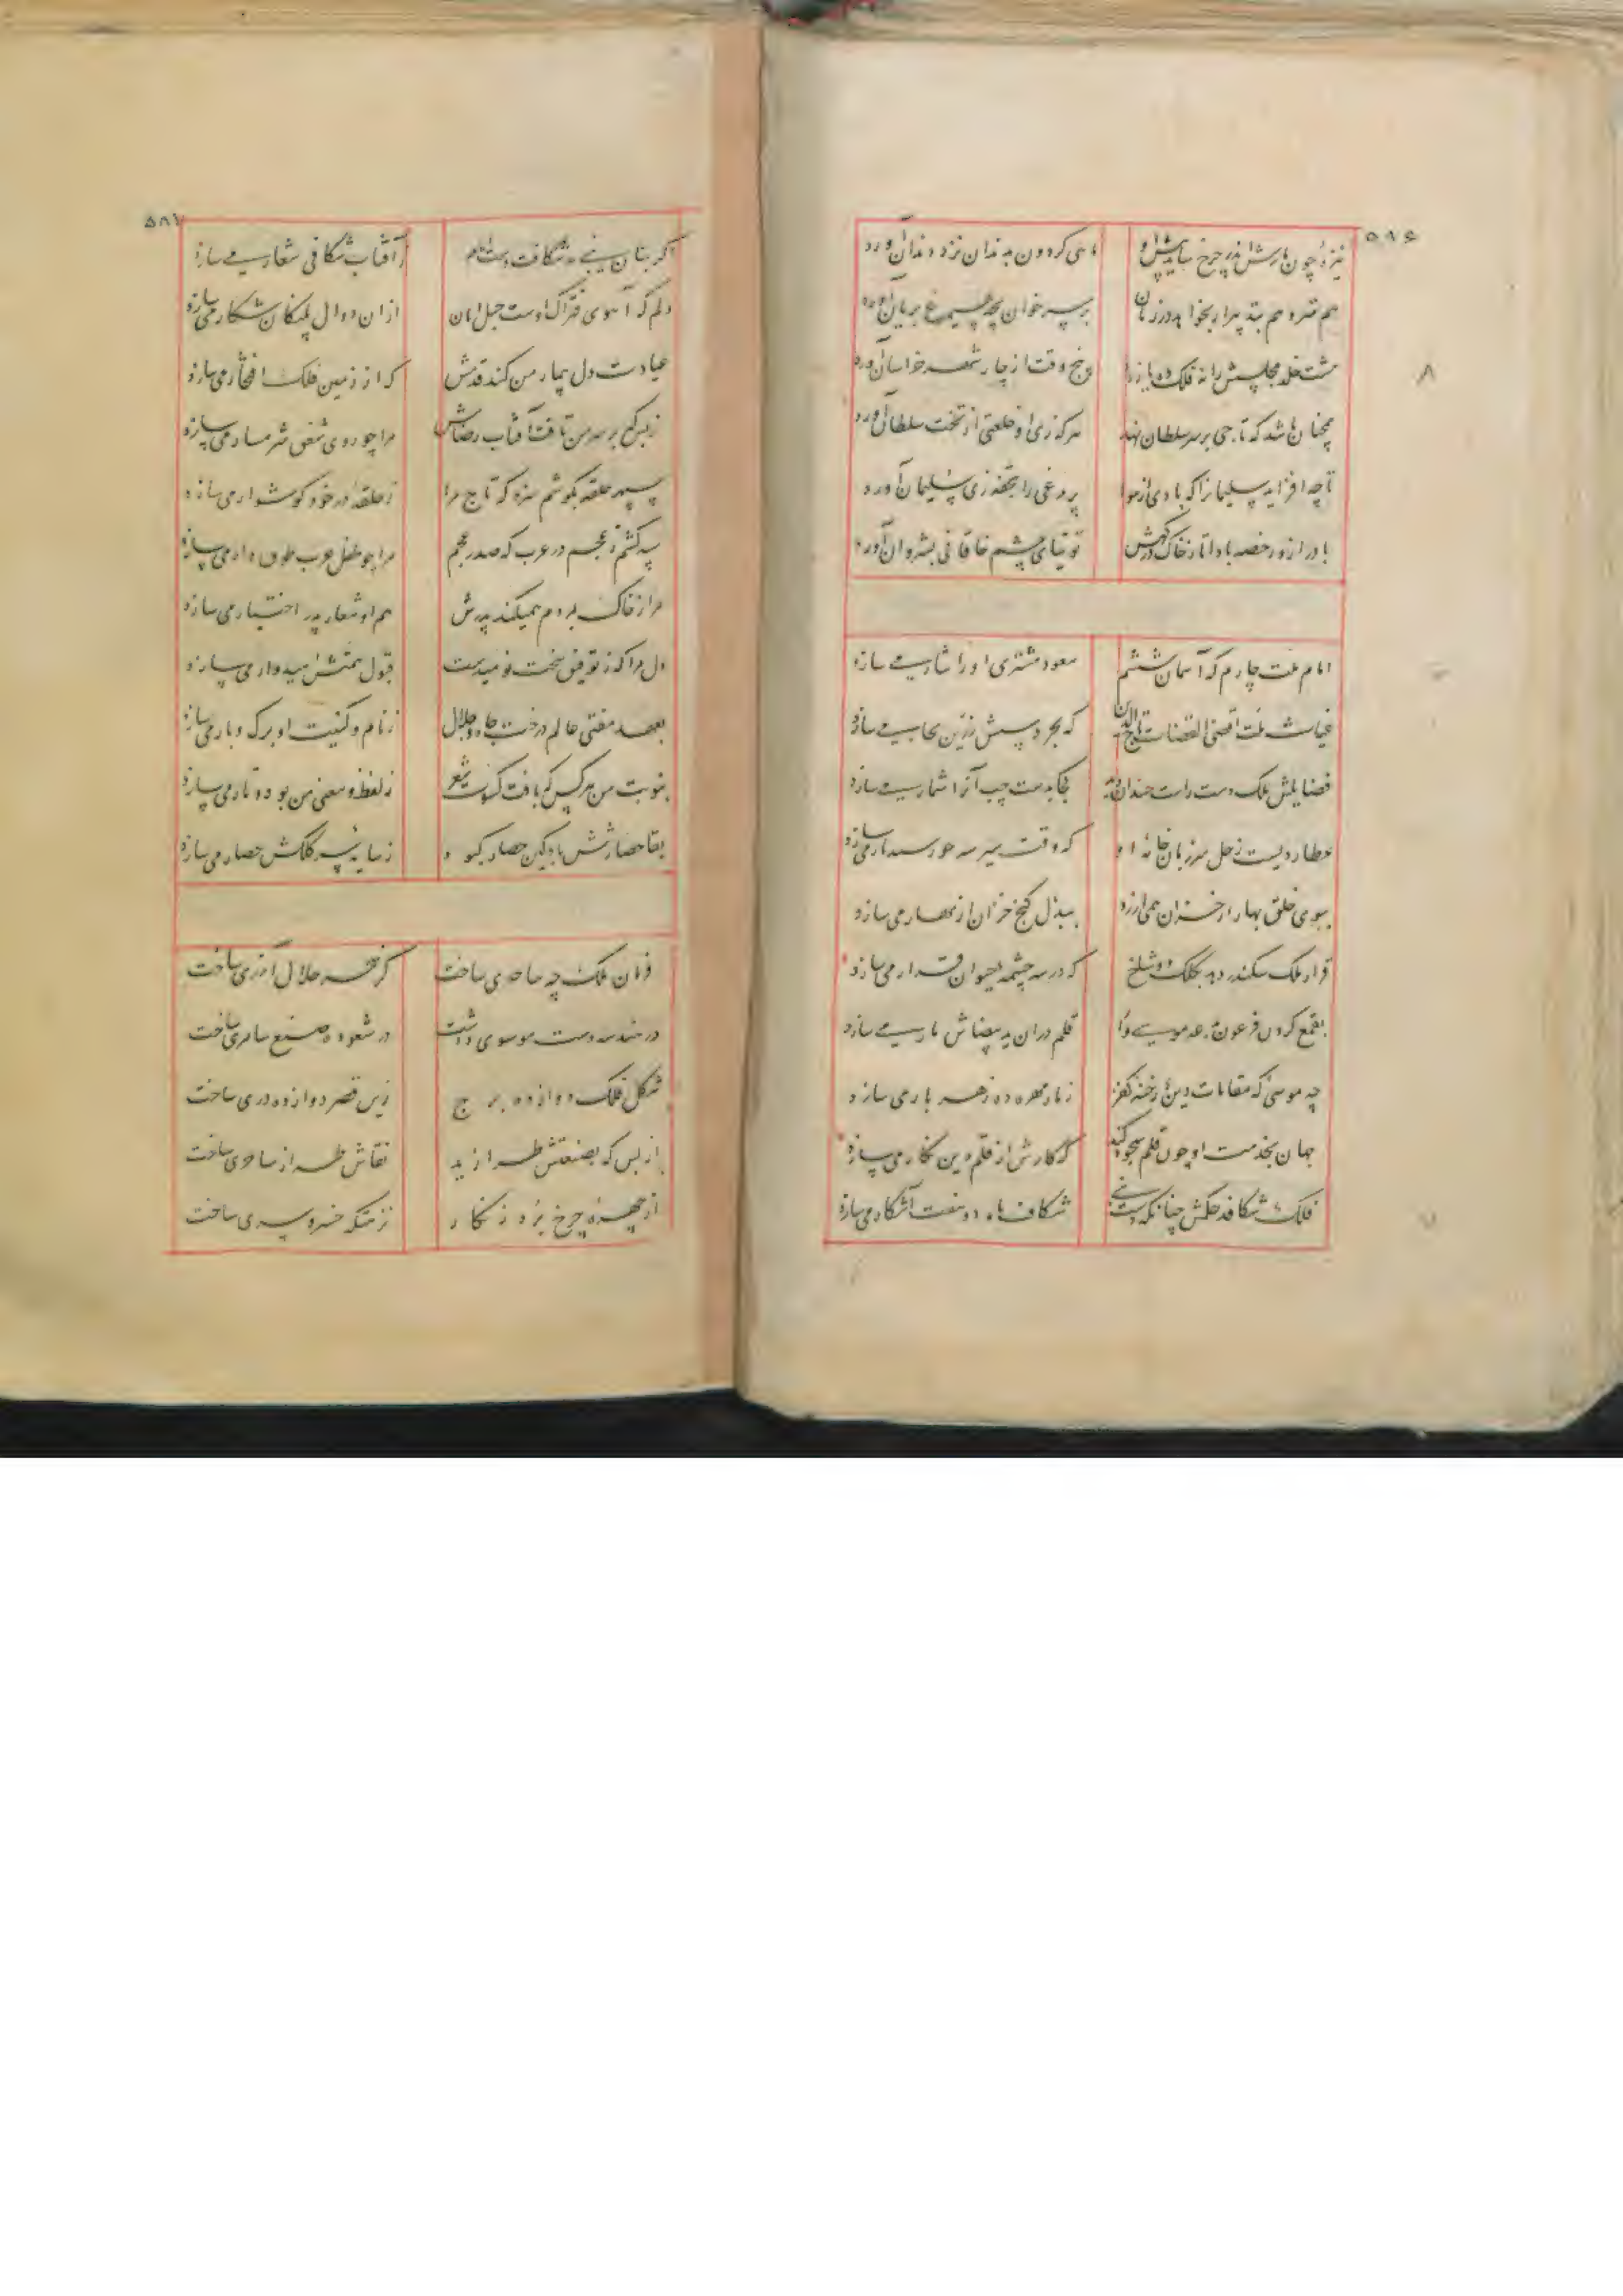 ۵۸۶
نیزهٔ چون مارش اندر چرخ ساید نیش او
ماهی گردون به دندان نزد دندان آورد
بر سر خوان بچه سیمرغ بریان آورد
هشت خلد مجلسش را نه فلک ده یازد
پنج وقت از چار شهر خراسان آورد
همچنان باشد که تاجی بر سر سلطان نهد
هرکه زی او خلعتی از تخت سلطان آورد
تا چه افزاید سلیمانرا که بادی از هوا
پر مرغی را بتحفه زی سلیمان آورد
باد را از در خصه باد تا ز خاک درگهش
توتیای چشم خاقانی بشروان آورد
امام ملت چارم که آسمان ششم
سعود مشتری او را نثار می سازد
غیاث ملت اقضی القضات تاج الدین
که بحر دستش زرین بحار می سازد
فضایلش ملک دست راست چندان
بجایدست چپ آنرا شمار می سازد
عطاردیست زحل سر زبان خانهٔ او
که وقت سیر سه خورسدار می سازد
ببوی خلق بهار از خزان همی آرزد
ببذل گنج خزان از بهار می سازد
قرار ملک سکندر دهد بکلک دو شاخ
که در سه چشمه حیوان قرار می سازد
بقمع کردن فرعون بدعه موسی وار
قلم در آن ید بیضاش مار می سازد
چه موسی که مقامات دین و رخنه کفر
ز مار مهره ده زهر بار می سازد
جهان بخدمت او چون قلم سجود کند
که کارش از قلم دین نگار می سازد
فلک شکافد حکمش چنانکه دست نبی
شکاف ماه دو هفته آشکار می سازد
۵۸۷
اگر بنان نبی مه شکافت دست امام
ز آفتاب شکافی شعار می سازد
دلم که آهوی فتراک اوست حبل امان
از ان دوال پلنگان شکار می سازد
عیادت دل بیمار من کند قدمش
که از زمین فلک افتخار می سازد
ز بس که بر سر من تافت آفتاب رضاش
مرا چو روی شفق شرمسار می سازد
سپهر حلقه بگوشم سزد که تاج مرا
ز حلقهٔ در خود گوشوار می سازد
سپه کشم ز عجم در عرب که صدر عجم
مرا چو طفل عرب طوق دار می سازد
مرا ز خاک بمردم همیکند پدرش
هم او شعار پدر اختیار می سازد
دل مرا که ز توفیق سخت نومیدست
قبول همتش امیدوار می سازد
بعهد مفتی عالم درخت جاه و جلال
ز نام و کنیت او برگ و بار می سازد
بنوبت من هر کس که بافت کسوت شعر
ز لفظ و معنی من پود و تار می سازد
بقا حصارتش باد کین حصار کبود
ز سایه سر کلکش حصار می سازد
فرمان ملک چه ساحری ساخت
کز سحر حلال آذری ساخت
در هندسه دست موسوی داشت
در شعوده صنع سامری ساخت
شکل فلک دوازده برج
زین قصر دوازده دری ساخت
از بس که بصنعتش طرازید
نقاش طراز ساحری ساخت
از چهرهٔ چرخ برد زنگار
نزهتگه خسرو سری ساخت